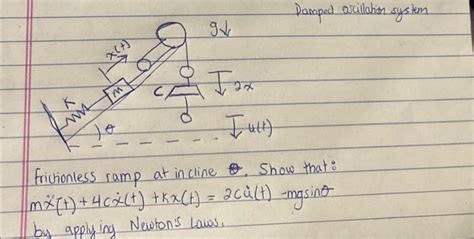 Damped oscillation system
g↓
x(t)
K
m
θ
C
2x
u(t)
frictionless ramp at incline θ. Show that:
mẍ(t) + 4cẋ(t) + kx(t) = 2cu̇(t) - mgsinθ
by applying Newton's Laws.